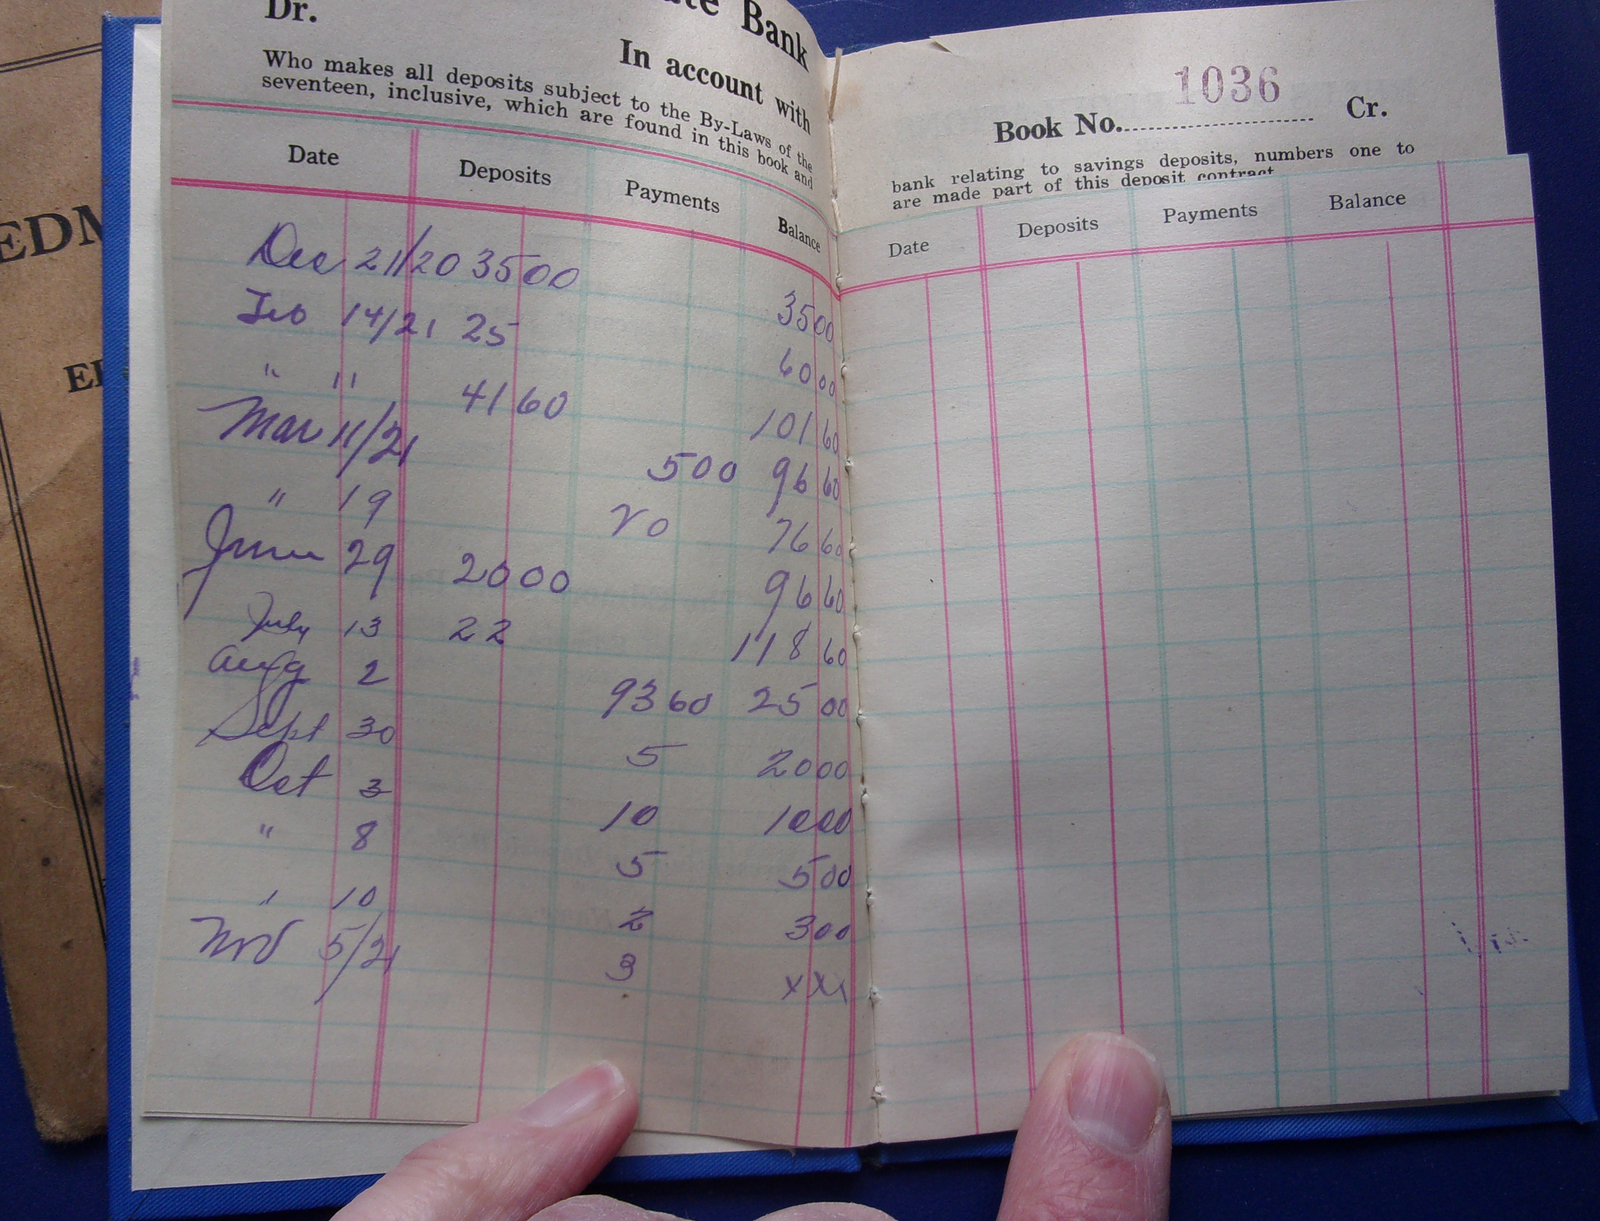 EDM
Dr.
Bank
In account with
Who makes all deposits subject to the By-Laws of the
seventeen, inclusive, which are found in this book and
Date Deposits Payments Balance
Dec 21/20 3500 3500
Feb 14/21 25 6000
" " 4160 10160
Mar 11/21 500 9660
" 19 20 7660
June 29 2000 9660
July 13 22 11860
Aug 2 9360 2500
Sept 30 5 2000
Oct 3 10 1000
" 8 5 500
" 10 2 300
Nov 5/21 3 xxx
1036
Book No. Cr.
bank relating to savings deposits, numbers one to
are made part of this deposit contract
Date Deposits Payments Balance